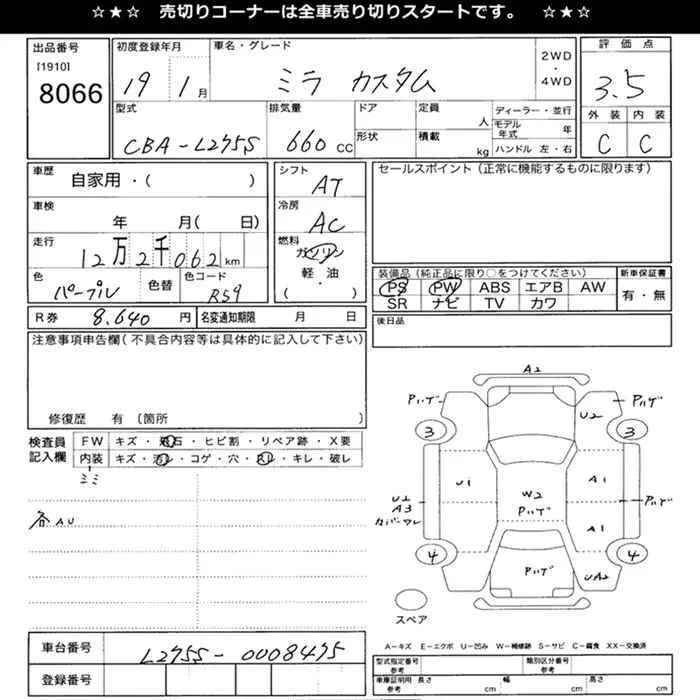 ☆★☆ 売切りコーナーは全車売り切りスタートです。 ☆★☆
出品番号
[1910]
8066
初度登録年月
19 1月
車名・グレード
ミラ カスタム
2WD
・
4WD
評価点
3.5
外装 内装
C C
型式
CBA-L275S
排気量
660 cc
ドア
形状
定員
人
積載
kg
ディーラー・並行
モデル年式 年
ハンドル 左・右
車歴
自家用・( )
車検
年 月( 日)
走行
12万2千062km
色
パープル
色替
色コード
R59
シフト
AT
冷房
AC
燃料
ガソリン
軽・油
( )
セールスポイント(正常に機能するものに限ります)
装備品(純正品に限り○をつけてください)
PS PW ABS エアB AW
SR ナビ TV カワ
新車保証書
有・無
R券 8.640 円
名変通知期限 月 日
後日品
注意事項申告欄(不具合内容等は具体的に記入して下さい)
修復歴 有〔箇所
検査員
記入欄
FW キズ・飛石・ヒビ割・リペア跡・X要
内装 キズ・汚レ・コゲ・穴・スレ・キレ・破レ
ミミ
各AU
A2
Pハゲ
Pハゲ
U2
3
3
U1
A1
U2
A3
カバーワレ
W2
Pハゲ
Pハゲ
A1
4
4
Pハゲ
UA2
スペア
車台番号
L275S-0008475
登録番号
A-キズ E-エクボ U-凹み W-補修跡 S-サビ C-腐食 XX-交換済
型式指定番号
参考
類別区分番号
参考
車庫証明用
参考
長さ cm
幅 cm
高さ cm